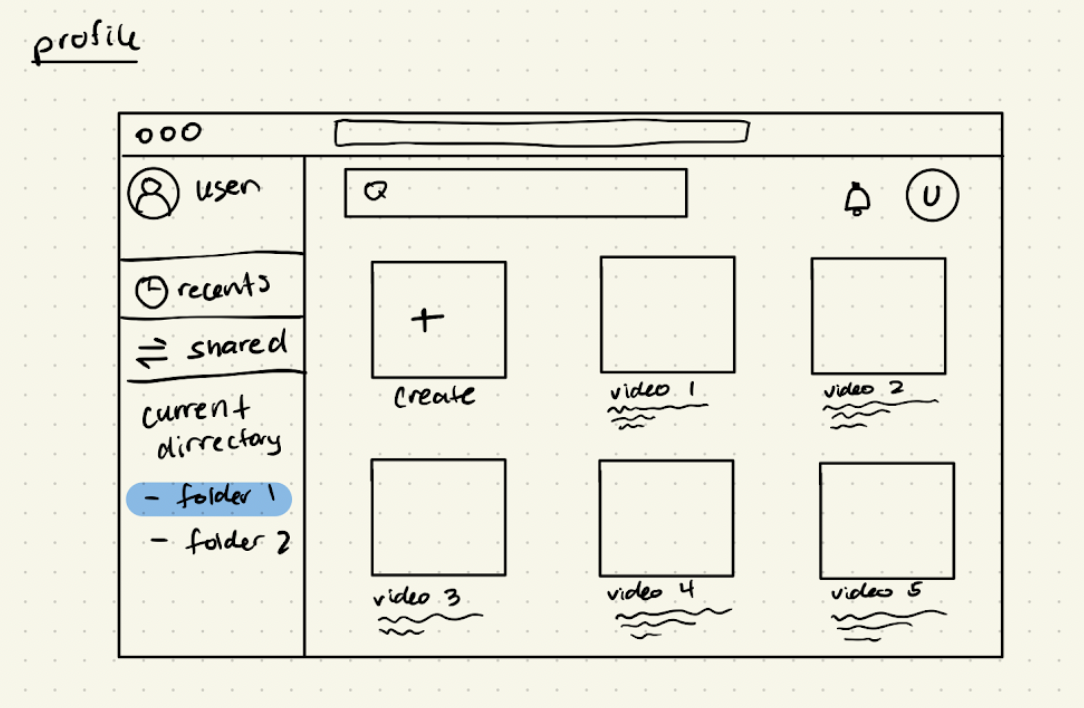 profile
user
U
recents
shared
current
dirrectory
- folder 1
- folder 2
+
create
video 1
video 2
video 3
video 4
video 5